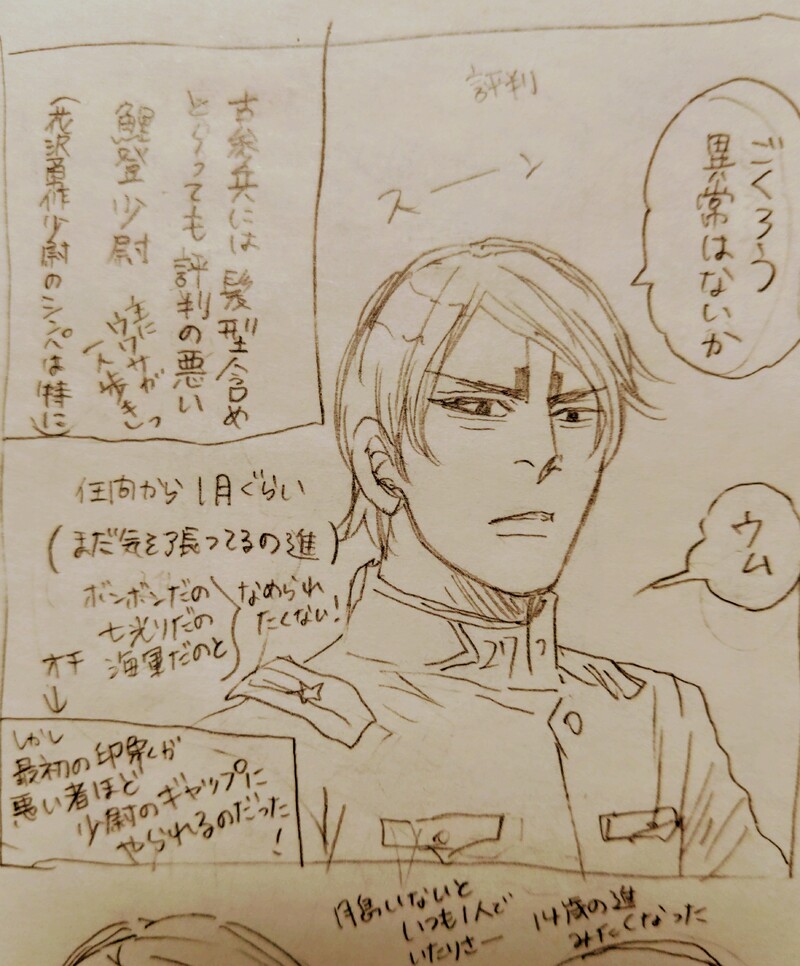 ごくろう
異常はないか
評判
スーン
ウム
古参兵には髪型含め
とっても評判の悪い
鯉登少尉
主に
ウワサが
一人歩きっ
(花沢勇作少尉のシンパは特に)
任官から1月ぐらい
(まだ気を張ってるの進)
なめられ
たくない!
ボンボンだの
七光りだの
海軍だのと
オチ
↓
しかし
最初の印象が
悪い者ほど
少尉のギャップに
やられるのだった
!
27
月島いないと
いつも1人で
いたりさー
14歳の進
みたくなった